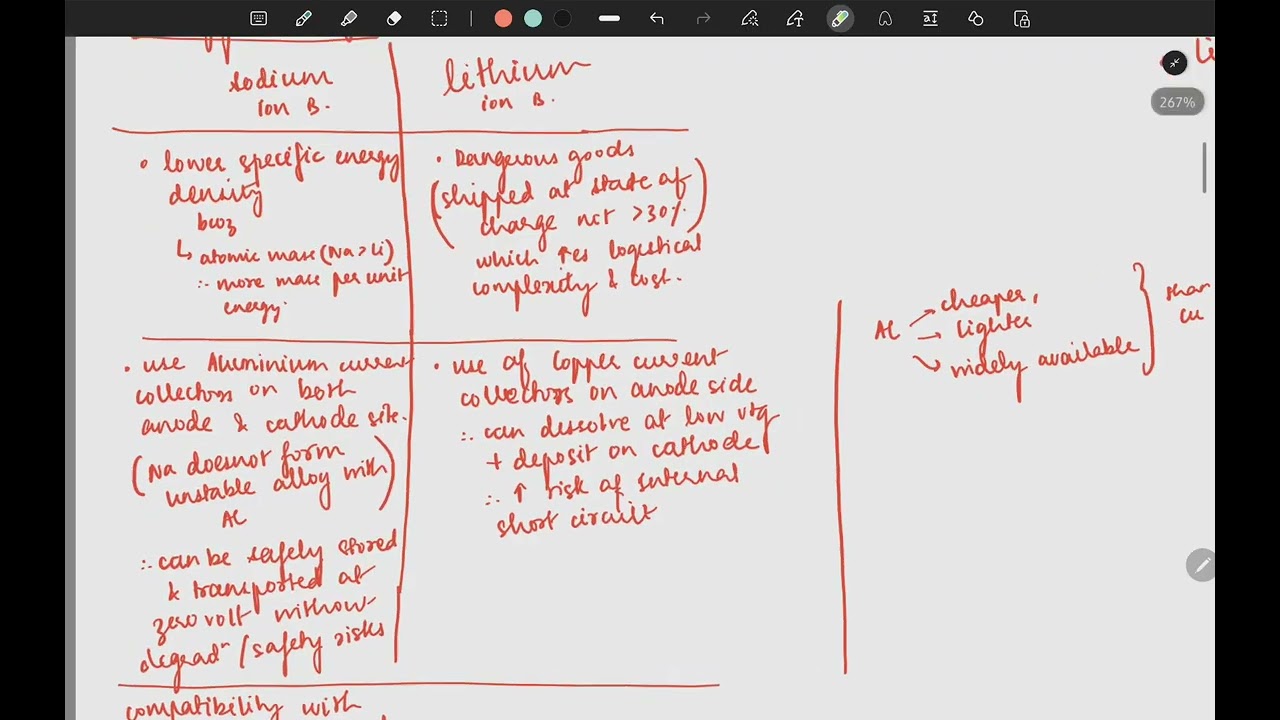 267%
sodium
ion B.
lithium
ion B.
• lower specific energy
density
bcoz
↳ atomic mass (Na > Li)
∴ more mass per unit
energy.
• Dangerous goods
(shipped at state of
charge not >30%)
which ↑es logistical
complexity & cost.
• use Aluminium current
collectors on both
anode & cathode side.
(Na doesnot form
unstable alloy with)
Al
∴ can be safely stored
& transported at
zero volt without
degradⁿ / safety risks
• use of Copper current
collectors on anode side
∴ can dissolve at low vtg
+ deposit on cathode
∴ ↑ risk of internal
short circuit
Al → cheaper,
→ lighter
→ widely available
cu
compatibility with